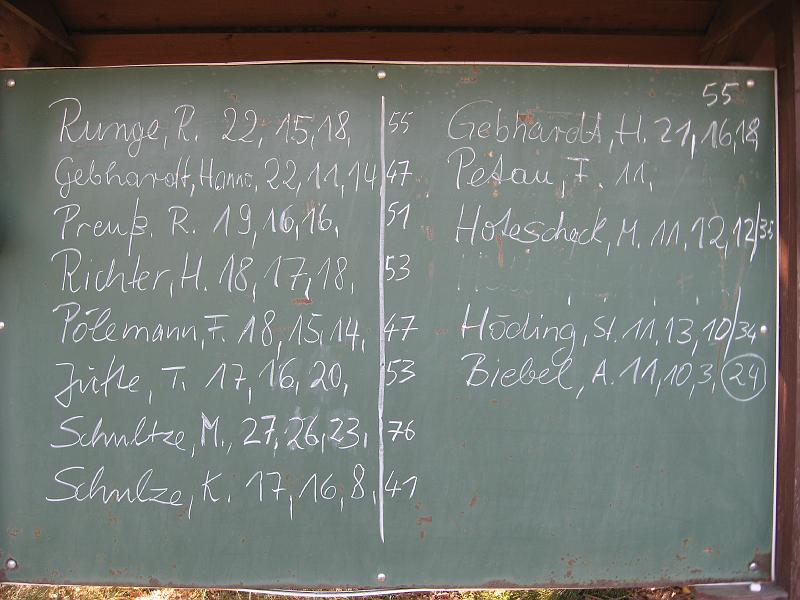 Runge, R. 22, 15, 18, 55
Gebhardt, Hanno, 22, 11, 14 47
Preuß. R. 19, 16, 16, 51
Richter, H. 18, 17, 18, 53
Pölemann, F. 18, 15, 14, 47
T. 17, 16, 20, 53
Schultze, M., 27, 26, 23, 76
Schulze, K. 17, 16, 8, 41
55
Gebhardt, H. 21, 16, 18,
Petau, F. 11,
M. 11, 12, 12/35
Höding, St. 11, 13, 10/34
Biebel, A. 11, 10, 3, 24